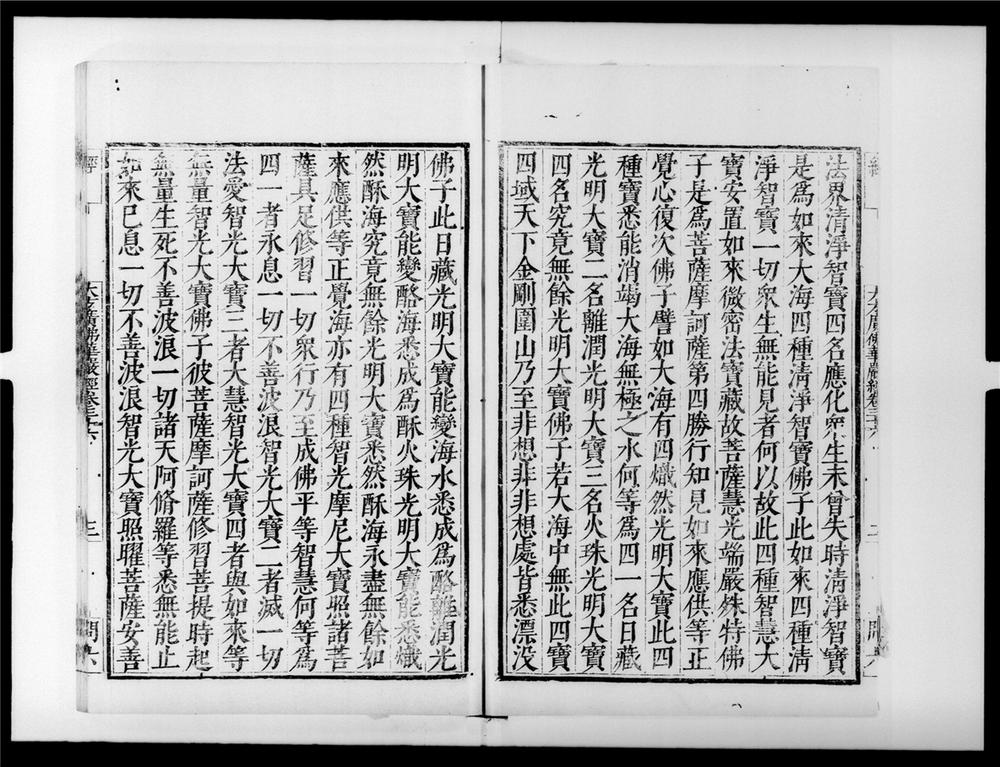 法界清淨智寶四名應化眾生未曾失時清淨智寶
是為如來大海四種清淨智寶佛子此如來四種清
淨智寶一切眾生無能見者何以故此四種智慧大
寶安置如來微密法寶藏故菩薩慧光端嚴殊特佛
子是為菩薩摩訶薩第四勝行知見如來應供等正
覺心復次佛子譬如大海有四熾然光明大寶此四
種寶悉能消竭大海無極之水何等為四一名日藏
光明大寶二名離潤光明大寶三名火珠光明大寶
四名究竟無餘光明大寶佛子若大海中無此四寶
四域天下金剛圍山乃至非想非非想處皆悉漂沒
大方廣佛華嚴經卷三十六
佛子此日藏光明大寶能變海水悉成為酪離潤光
明大寶能變酪海悉成為酥火珠光明大寶能悉熾
然酥海究竟無餘光明大寶悉然酥海永盡無餘如
來應供等正覺海亦有四種智光摩尼大寶照諸菩
薩具足修習一切眾行乃至成佛平等智慧何等為
四一者永息一切不善波浪智光大寶二者滅一切
法愛智光大寶三者大慧智光大寶四者與如來等
無量智光大寶佛子彼菩薩摩訶薩修習菩提時起
無量生死不善波浪一切諸天阿脩羅等悉無能止
如來已息一切不善波浪智光大寶照曜菩薩安善
經
大方廣佛華嚴經卷三十六
三
問六